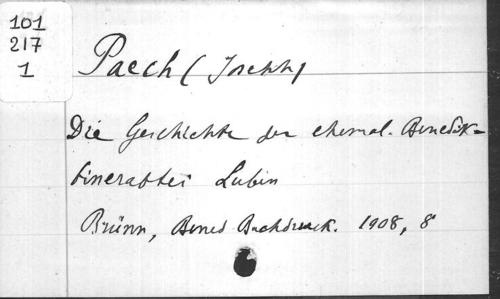 101
217
1
Paech (Joseph)
Die Geschichte der ehemal. Benedik=
tinerabtei Lubin
Brünn, Bened Buchdruck. 1908, 8°